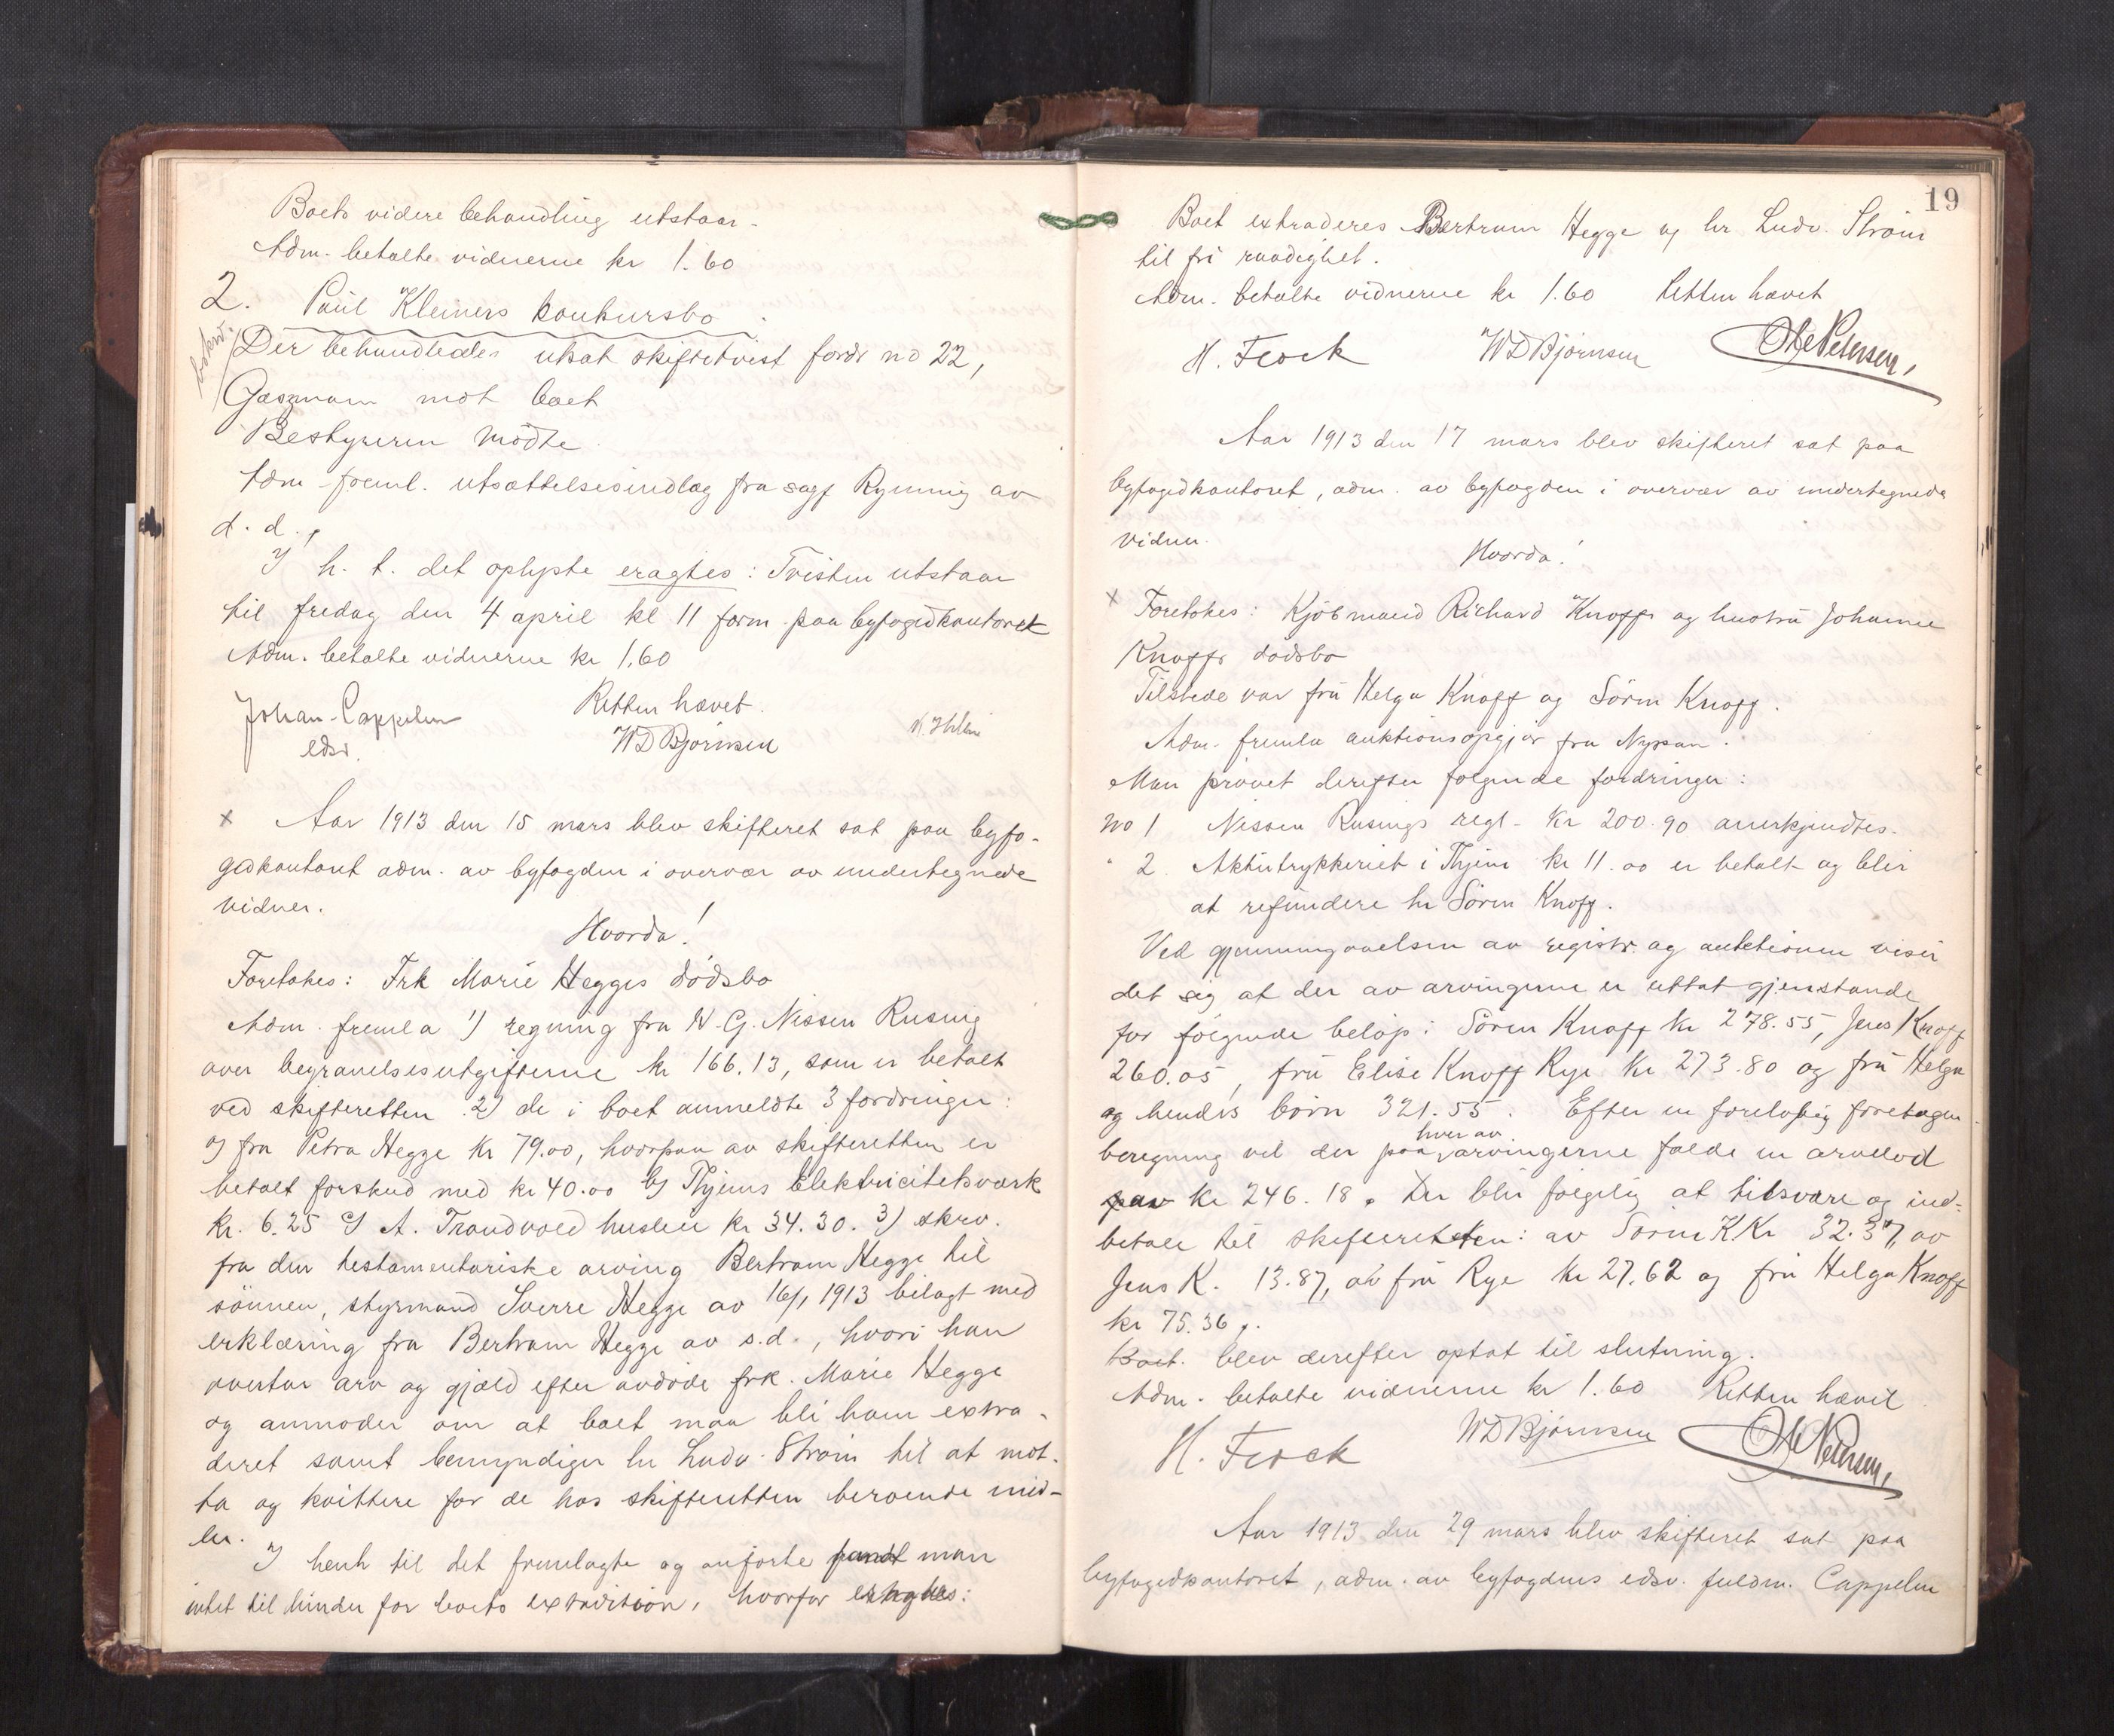 Boets videre behandling utstaar.
Adm. betalte vidnerne kr 1.60
2. Paul Kleiners konkursbo.
Der behandledes uksat skiftetvist fordr no 22,
Gaszmann mot boet
Bestyreren mödte.
Adm freml. utsættelsesindlæg fra sagf Rynning av
d. d.,
I h. t. det oplyste eragtes: Tvisten utstaar
til fredag den 4 april kl 11 form. paa byfogedkontoret
Adm. betalte vidnerne kr 1.60
Retten hævet.
Johan Cappelen
edsv.
WD Bjørnsen
x Aar 1913 den 15 mars blev skifteret sat paa byfo-
gedkontoret adm. av byfogden i overvær av undertegnede
vidner.
Hvorda!
Foretokes: Frk Marie Hegges dödsbo
Adm. fremla 1) regning fra N. G. Nissen Rusing
over begravelsesutgifterne kr 166.13, som er betalt
ved skifteretten. 2) de i boet anmeldte 3 fordringer:
a) fra Petra Hegge kr 79.00, hvorpaa av skifteretten er
betalt forskud med kr 40.00 b) Thjems Elektricitetsværk
kr. 6.25 c) A. Trondvold husleie kr 34.30. 3) skrv.
fra den testamentariske arving Bertram Hegge til
sönnen, styrmand Sverre Hegge av 16/1 1913 bilagt med
erklæring fra Bertram Hegge av s.d., hvori han
overtar arv og gjæld efter avdöde frk. Marie Hegge
og anmoder om at boet maa bli ham extra-
deret samt bemyndiger hr Ludv. Ström til at mot-
ta og kvittere for de hos skifteretten beroende mid-
ler.
I henh til det fremlagte og anförte fandt man
intet til hinder for boets extradition, hvorfor eragtes:
19
Boet extraderes Bertram Hegge og hr. Ludv. Ström
til fri raadighet.
Adm. betalte vidnerne kr 1.60 Retten hævet
H. Frock WD Bjørnsen Ole Petersen,
Aar 1913 den 17 mars blev skifteret sat paa
byfogedkontoret, adm. av byfogden i overvær av undertegnede
vidner.
Hvorda!
x Foretokes: Kjöbmand Richard Knoffs og hustru Johanne
Knoffs dödsbo
Tilstede var fru Helga Knoff og Sören Knoff.
Adm. fremla auktionsopgjör fra Nypan.
Man prövet derefter fölgende fordringer:
no 1 Nissen Rusings regl. kr 200.90 anerkjendtes.
" 2 Aktietrykkeriet i Thjem kr 11.00 er betalt og blir
at refundere hr Sören Knoff.
Ved gjennemgaaelsen av registr. og auktionen viser
det sig at der av arvingerne er uttat gjenstande
for fölgende belöp: Sören Knoff kr 278.55, Jens Knoff
260.05, fru Elise Knoff Rye kr 273.80 og fru Helga
og hendes börn 321.55. Efter en forelöbig foretagen
beregning vil der paa hver av arvingerne falde en arvelod
paa kr 246.18. Der blir fölgelig at tilsvare og ind-
betale til skifteretten: av Sören K kr 32.37, av
Jens K. 13.87, av fru Rye kr 27.62 og fru Helga Knoff
kr 75.36,.
Boet blev derefter optat til slutning.
Adm. betalte vidnerne kr 1.60 Retten hævet
H. Frock WD Bjørnsen Ole Petersen,
Aar 1913 den 29 mars blev skifteret sat paa
byfogedkontoret, adm. av byfogdens edsv. fuldm. Cappelen